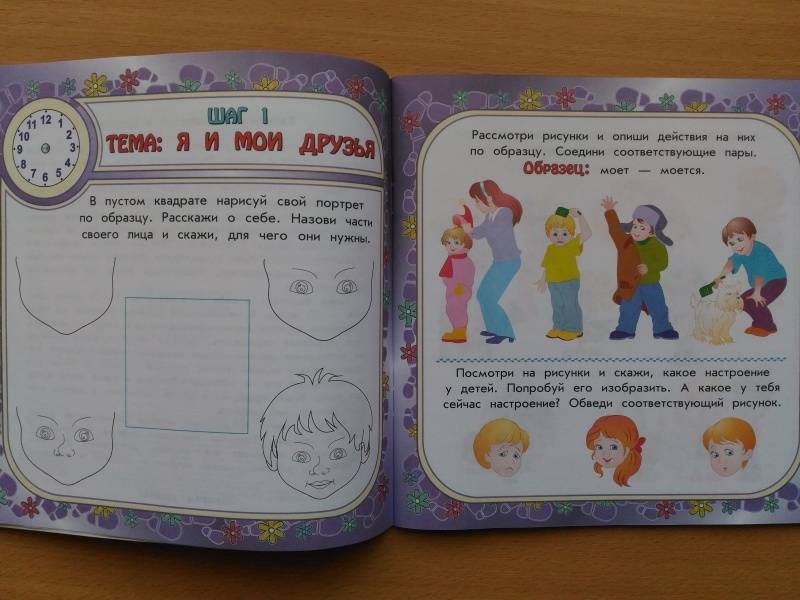 12
1
2
3
4
5
6
7
8
9
10
11
ШАГ 1
ТЕМА: Я И МОИ ДРУЗЬЯ
В пустом квадрате нарисуй свой портрет
по образцу. Расскажи о себе. Назови части
своего лица и скажи, для чего они нужны.
Рассмотри рисунки и опиши действия на них
по образцу. Соедини соответствующие пары.
Образец: моет — моется.
Посмотри на рисунки и скажи, какое настроение
у детей. Попробуй его изобразить. А какое у тебя
сейчас настроение? Обведи соответствующий рисунок.